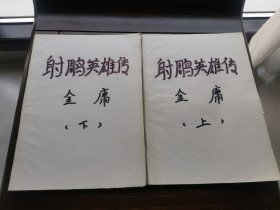 射鵰英雄传
金庸
(下)
射鵰英雄传
金庸
(上)